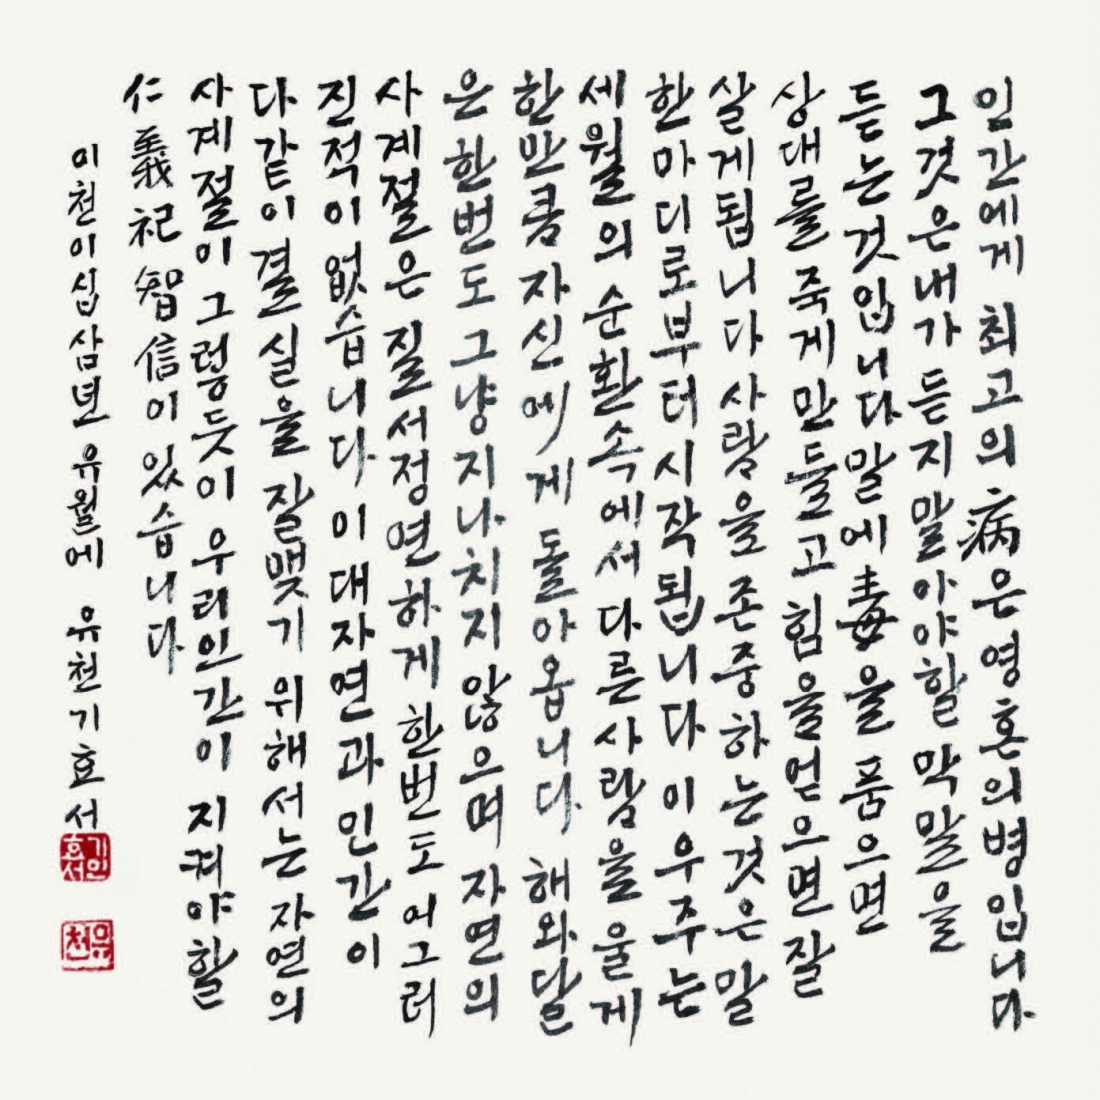 인간에게 최고의 病은 영혼의 병입니다
그것은 내가 듣지 말아야할 막말을
듣는것입니다 말에 毒을 품으면
상대를 죽게 만들고 힘을 얻으면 잘
살게됩니다 사람을 존중하는것은 말
한마디로부터 시작됩니다 이우주는
세월의 순환속에서 다른사람을 울게
한만큼 자신에게 돌아옵니다 해와달
은 한번도 그냥지나치지 않으며 자연의
사계절은 질서정연하게 한번도 어그러
진적이 없습니다 이 대자연과 인간이
다같이 결실을 잘맺기 위해서는 자연의
사계절이 그렇듯이 우리인간이 지켜야할
仁義祀智信이 있습니다
이천이십삼년 유월에 유천기효서
기인효서
유천